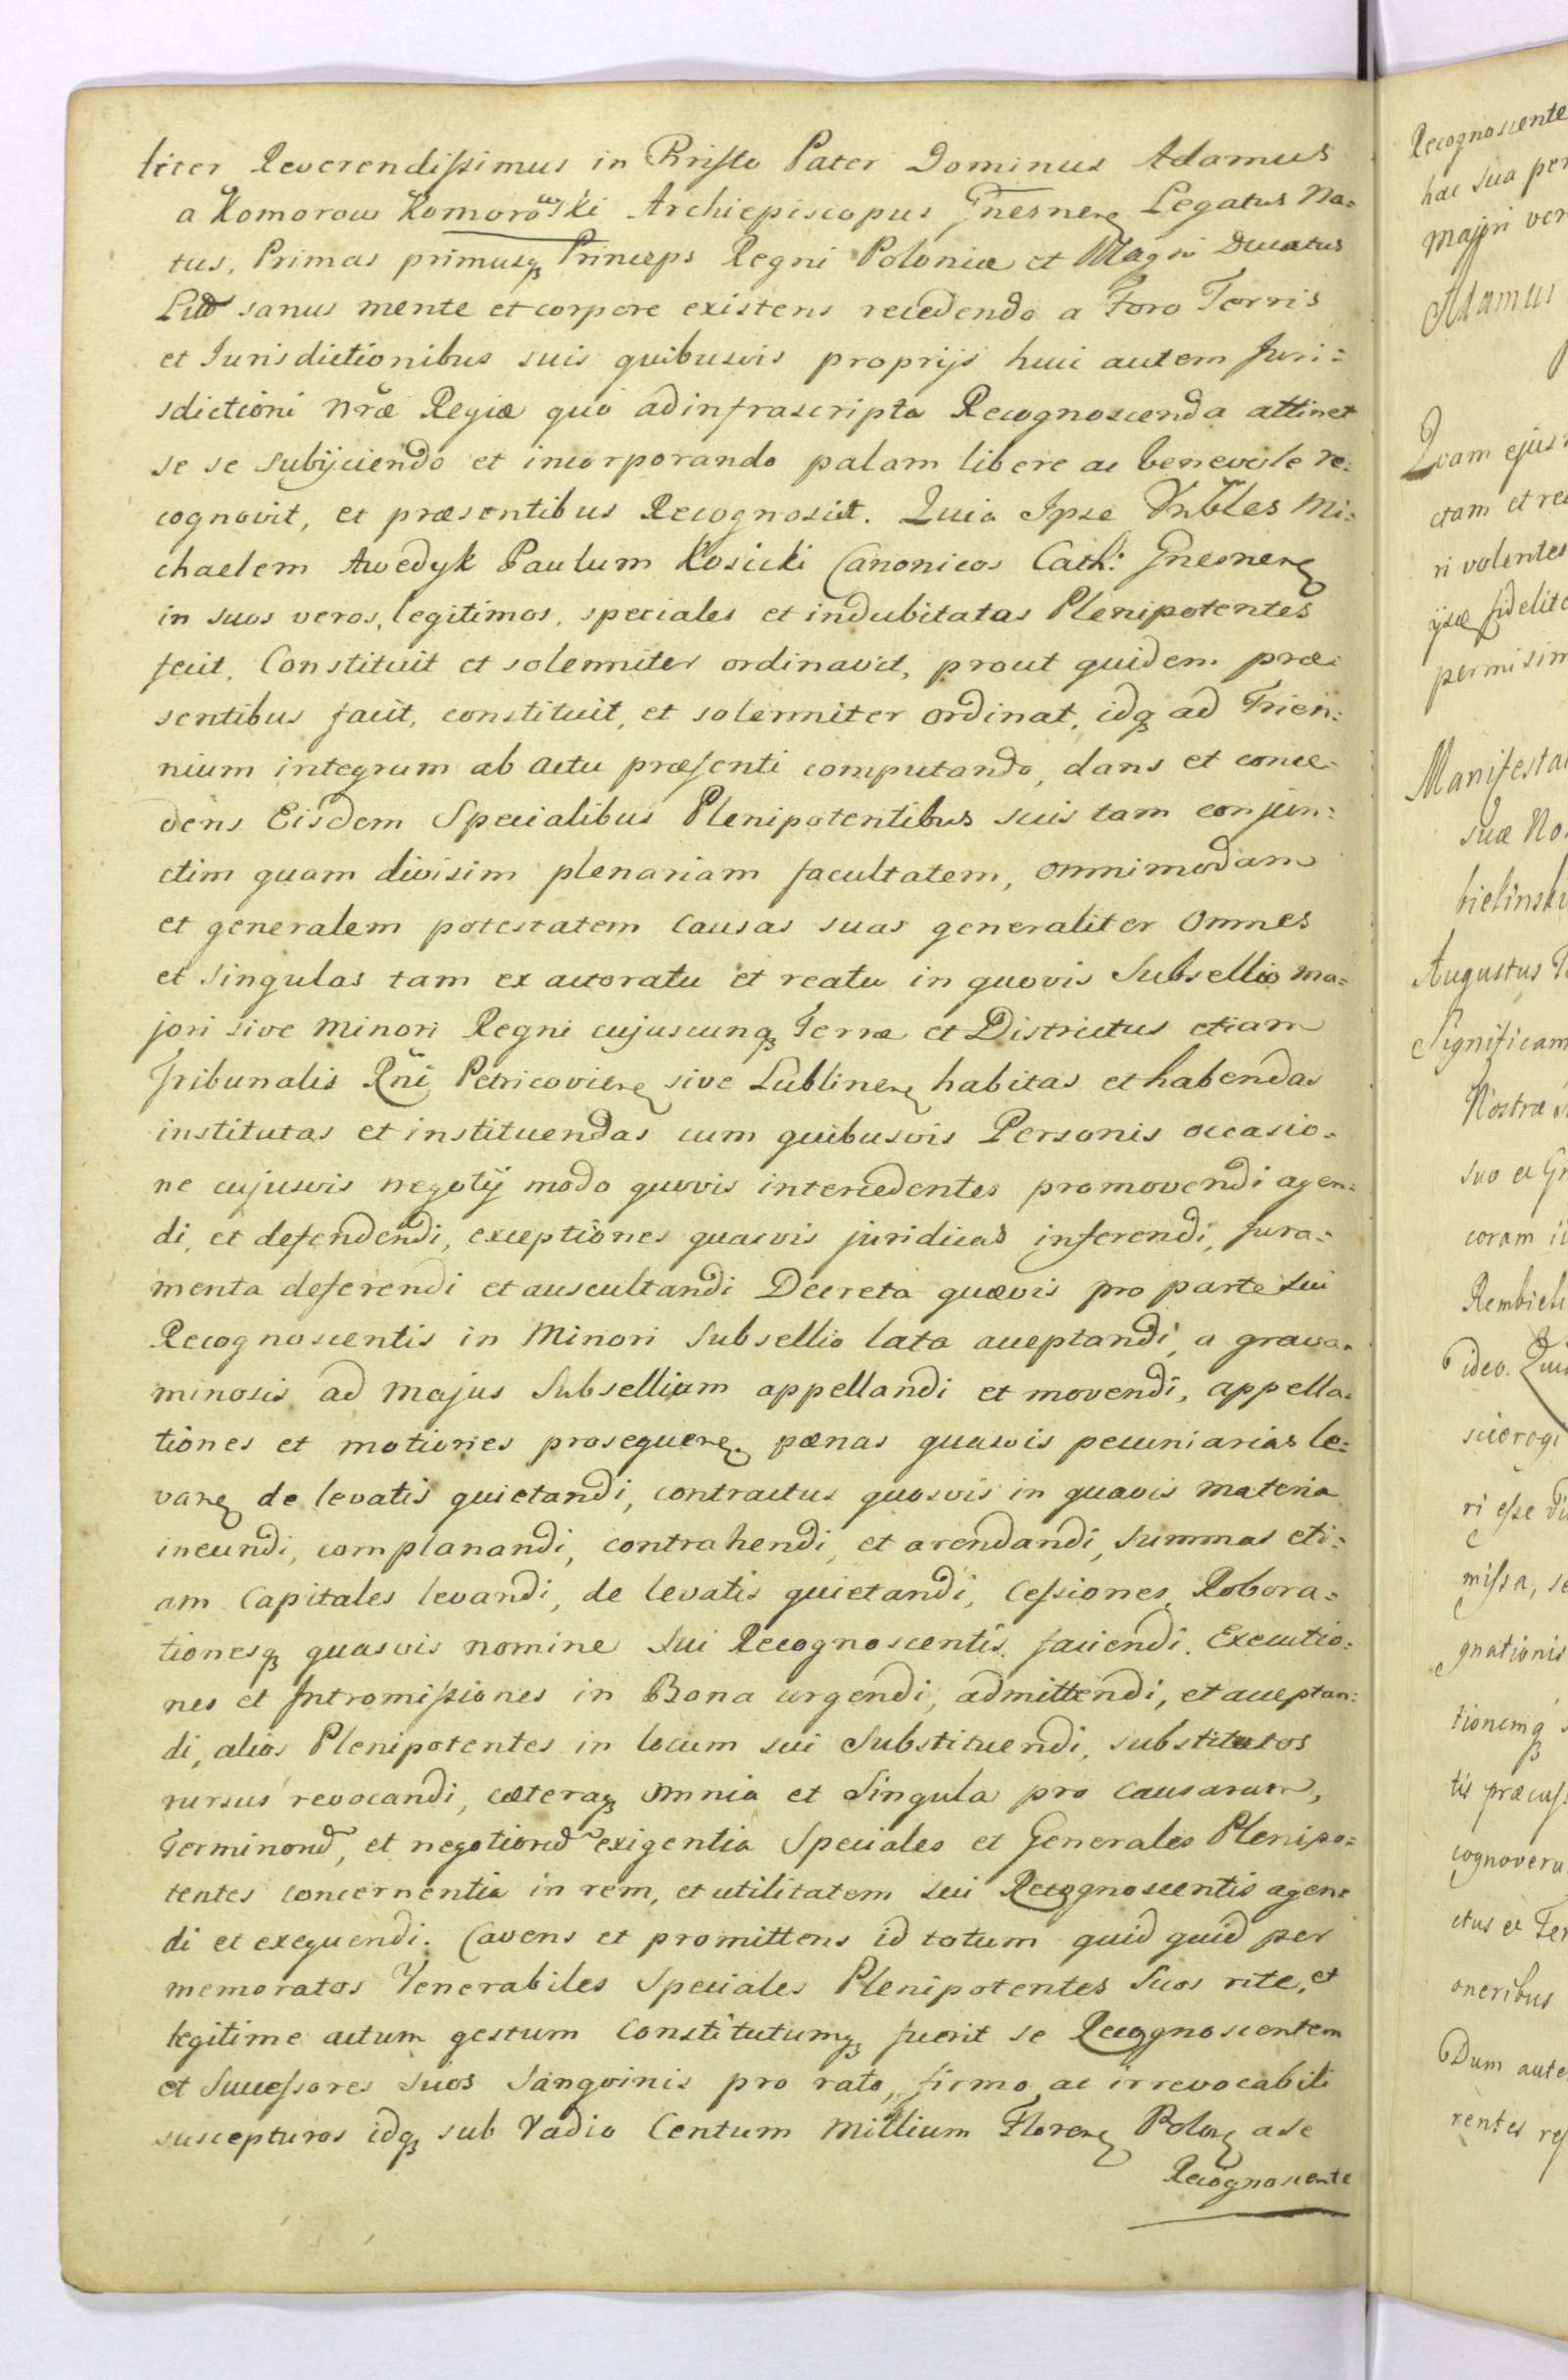 liter Reverendissimus in Christo Pater Dominus Adamus
a Komorow Komorowski Archiepiscopus Gnesnen Legatus Na=
tus, Primas primusq Princeps Regni Poloniæ et Magni Ducatus
Litt sanus mente et corpore existens recedendo a Foro Terris
et Iurisdictionibus suis quibusvis proprijs huic autem Juri=
sdictioni nræ Regiæ quo ad infrascripta Recognoscenda attinet
se se subijciendo et incorporando palam libere ac benevole re=
cognovit, et præsentibus Recognoscit. Quia Ipse Vnbles Mi=
chaelem Awedyk Paulum Kosicki Canonicos Cath: Gnesnen
in suos veros, legitimos, speciales et indubitatos Plenipotentes
fecit, Constituit et solenniter ordinavit, prout quidem præ=
sentibus facit, constituit, et solenniter ordinat, idq ad Trien=
nium integrum ab actu præsenti computando, dans et conce=
dens Eisdem Specialibus Plenipotentibus suis tam conjun=
ctim quam divisim plenariam facultatem, omnimodam
et generalem potestatem causas suas generaliter Omnes
et singulas tam ex actoratu et reatu in quovis Subsellio ma=
jori sive minori Regni cujuscunq Terræ et Districtus etiam
Tribunalis Rni Petricovien sive Lublinen habitas et habendas
institutas et instituendas cum quibusvis Personis occasio=
ne cujusvis negotij modo quovis intercedentes promovendi agen=
di, et defendendi, exceptiones quasvis juridicas inferendi, Jura=
menta deferendi et auscultandi Decreta quævis pro parte sui
Recognoscentis in Minori Subsellio lata acceptandi, a grava=
minosis ad majus Subsellium appellandi et movendi, appella=
tiones et motiones prosequen pænas quasvis pecuniarias le=
van de levatis quietandi, contractus quosvis in quavis materia
ineundi, complanandi, contrahendi, et arendandi, summas eti=
am Capitales levandi, de levatis quietandi, Cessiones, Robora=
tionesq quasvis nomine sui Recognoscentis faciendi. Executio=
nes et Intromissiones in Bona urgendi, admittendi, et acceptan=
di, alios Plenipotentes in locum sui Substituendi, substitutos
rursus revocandi, cæteraq omnia et Singula pro causarum,
Terminord, et negotiord exigentia Speciales et Generales Plenipo=
tentes concernentia in rem, et utilitatem sui Recognoscentis agen=
di et exequendi. Cavens et promittens id totum quid quid per
memoratos Venerabiles Speciales Plenipotentes suos rite, et
legitime actum gestum Constitutumq fuerit se Recognoscentem
et Successores suos Sangvinis pro rato, firmo, ac irrevocabili
suscepturos idq sub Vadio Centum Millium Floren Polon a se
Recognoscente
Recognoscente
hac sua per
majori ver
Adamus
Quam ejus
ctam et re
ri volentes
permisim
Manifesta
suæ No
bielinski
Augustus
Significam
Nostræ
suo et Gr
coram
Rembieli
ideo. Qui
ri esse
missa, se
gnationis
tionemq
tis præcus
cognoveru
ctus et Ter
oneribus
Dum aute
rentes